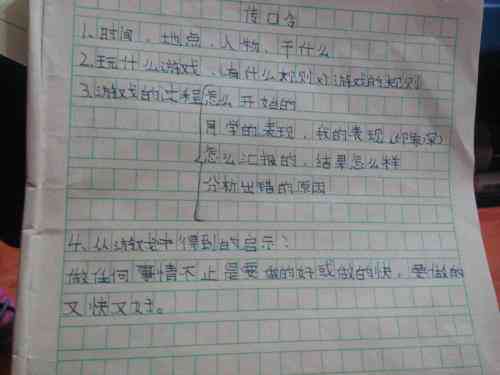 传口令
1.时间、地点、人物、干什么
2.玩什么游戏、(有什么规则x)游戏的规则
3.游戏的过程{怎么开始的
同学的表现、我的表现(印象深)
怎么汇报的、结果怎么样
分析出错的原因
4.从游戏中得到的启示:
做任何事情不止是要做的好或做的快,要做的
又快又好。